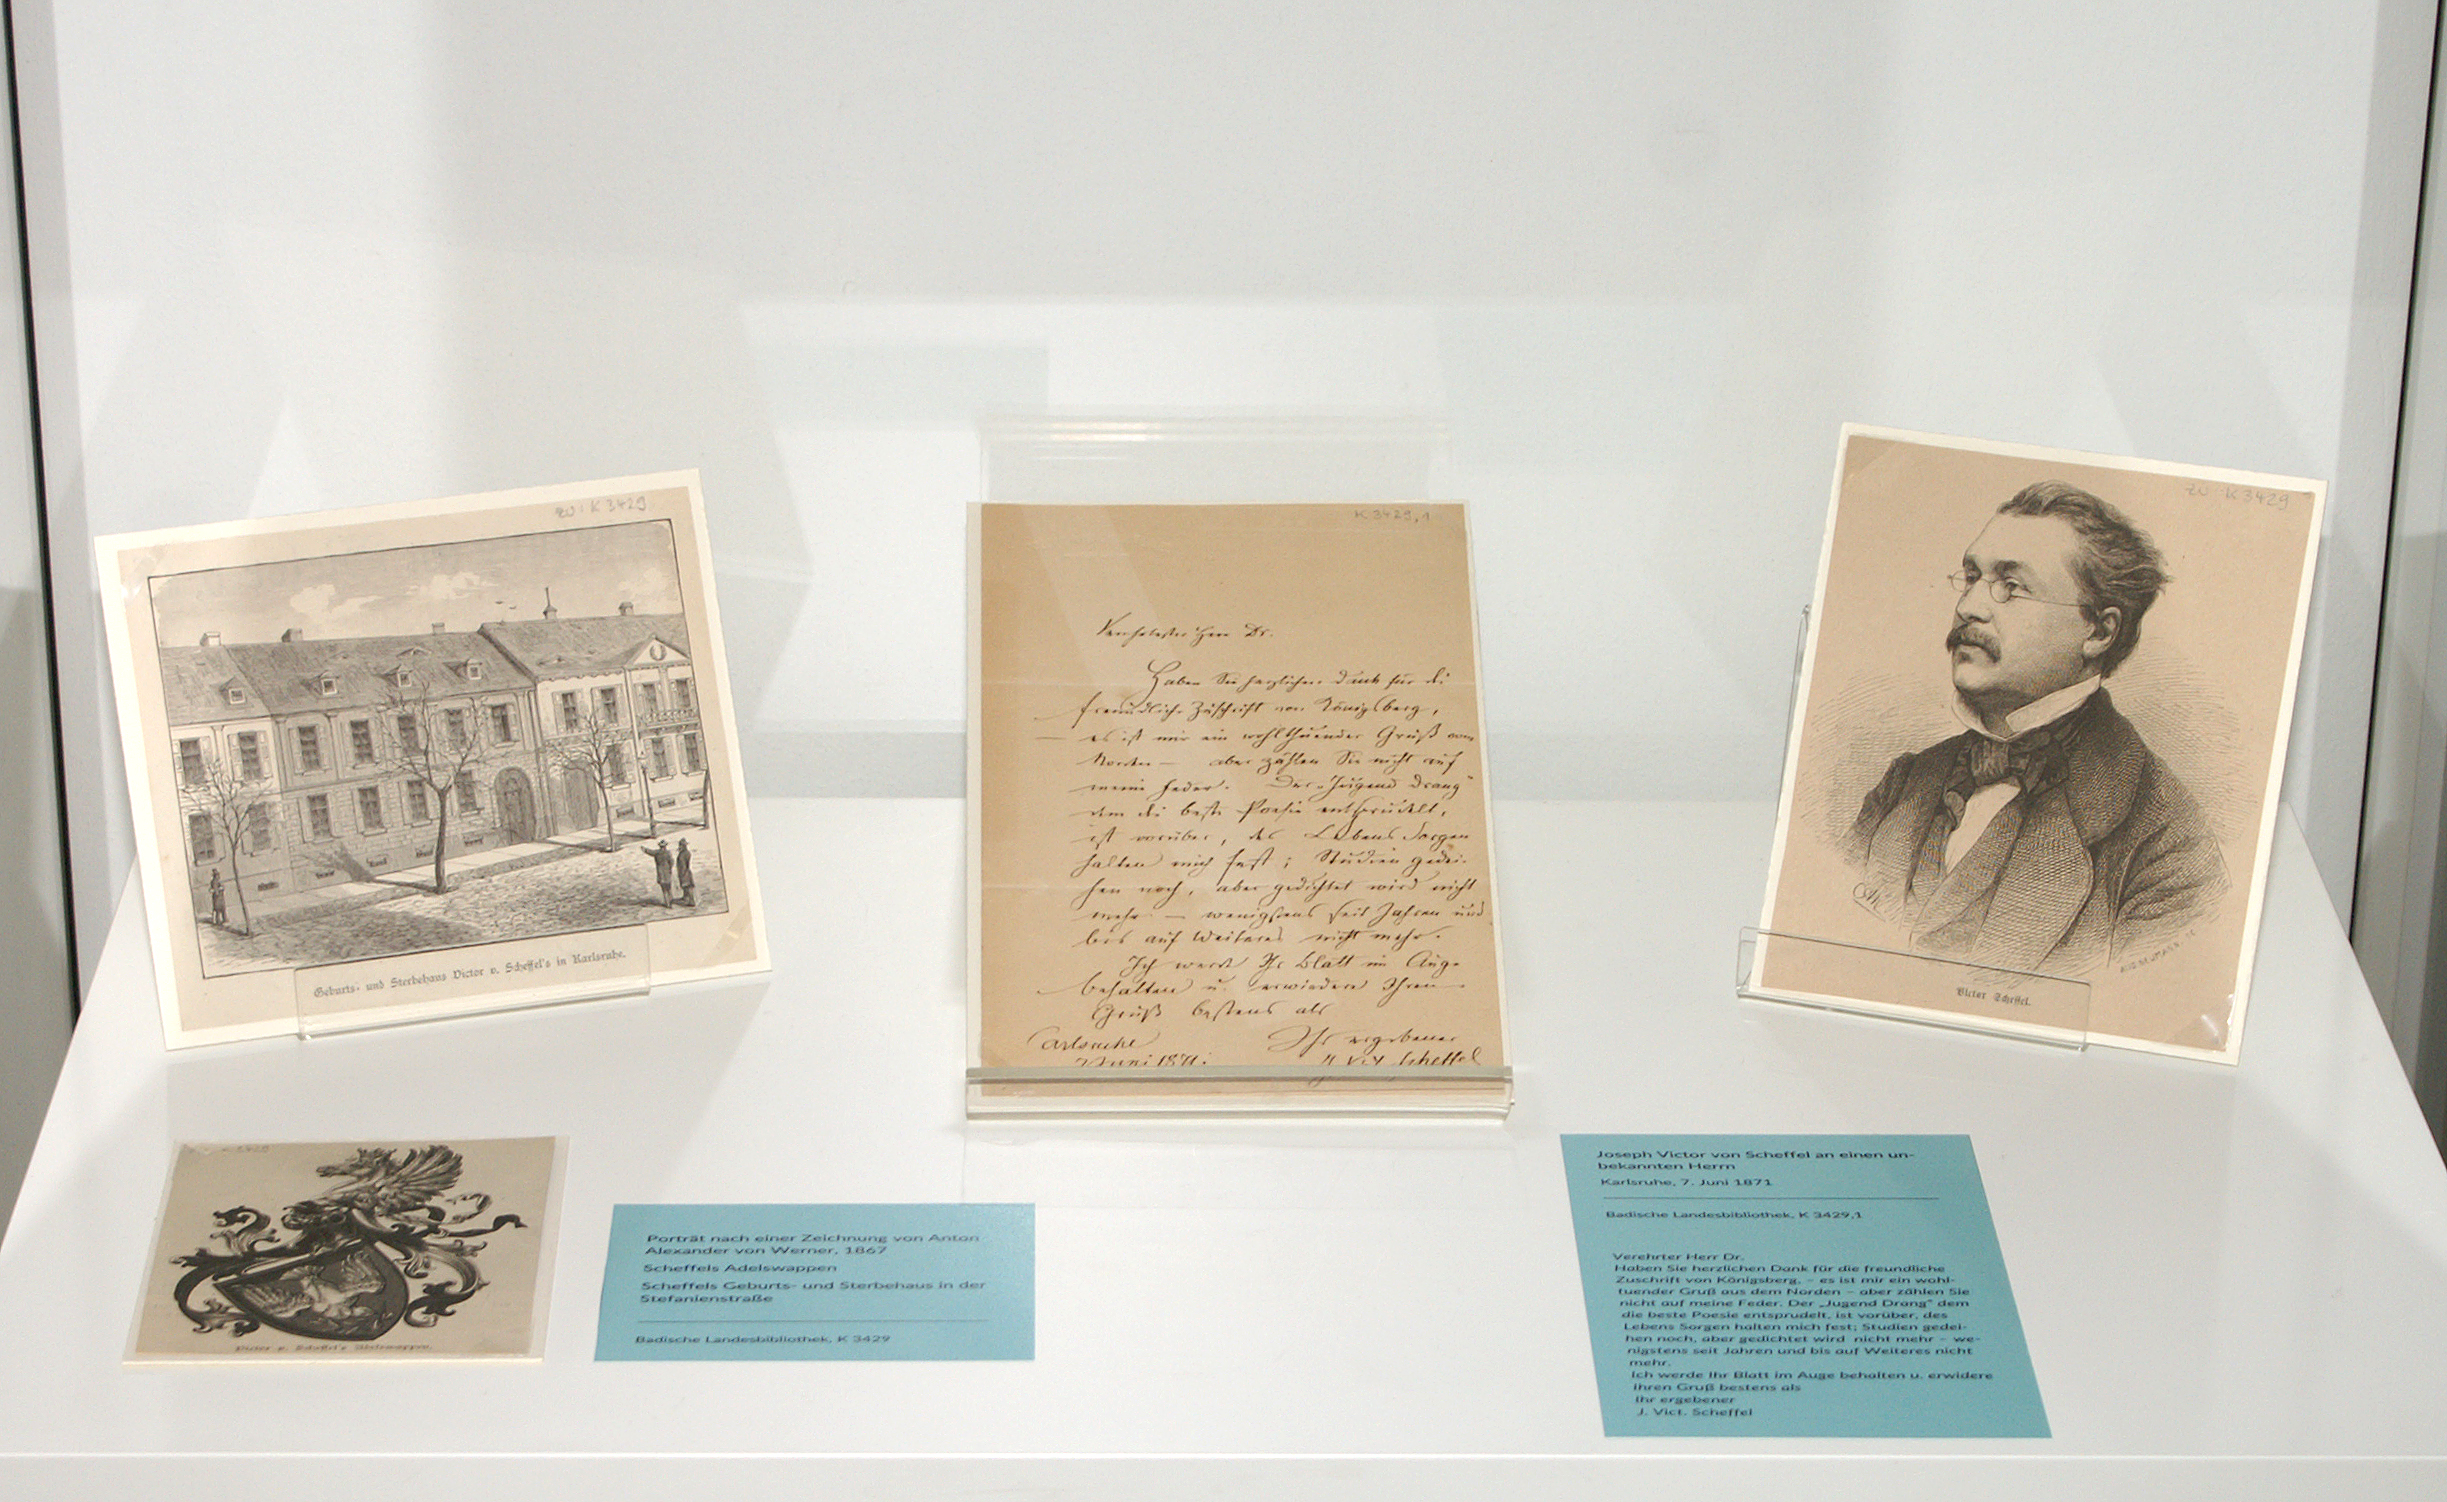 zu: K 3429
Geburts- und Sterbehaus Victor v. Scheffel's in Karlsruhe.
K 3429,1
Verehrtester Herr Dr.
Haben Sie herzlichen Dank für die
freundliche Zuschrift von Königsberg,
– es ist mir ein wohlthuender Gruß vom
Norden – aber zählen Sie nicht auf
meine Feder. Der „Jugend Drang"
dem die beste Poesie entsprudelt,
ist vorüber, des Lebens Sorgen
halten mich fest; Studien gedei-
hen noch, aber gedichtet wird nicht
mehr – wenigstens seit Jahren und
bis auf Weiteres nicht mehr.
Ich werde Ihr Blatt im Auge
behalten u. erwiedere Ihren
Gruß bestens als
Carlsruhe Ihr ergebener
7 Juni 1871. J. Vict. Scheffel
zu K 3429
AUG. NEUMANN
Victor Scheffel.
K 3429
Victor v. Scheffel's Adelswappen.
Porträt nach einer Zeichnung von Anton
Alexander von Werner, 1867
Scheffels Adelswappen
Scheffels Geburts- und Sterbehaus in der
Stefanienstraße
Badische Landesbibliothek, K 3429
Joseph Victor von Scheffel an einen un-
bekannten Herrn
Karlsruhe, 7. Juni 1871
Badische Landesbibliothek, K 3429,1
Verehrter Herr Dr.
Haben Sie herzlichen Dank für die freundliche
Zuschrift von Königsberg, – es ist mir ein wohl-
tuender Gruß aus dem Norden – aber zählen Sie
nicht auf meine Feder. Der „Jugend Drang" dem
die beste Poesie entsprudelt, ist vorüber, des
Lebens Sorgen halten mich fest; Studien gedei-
hen noch, aber gedichtet wird nicht mehr – we-
nigstens seit Jahren und bis auf Weiteres nicht
mehr.
Ich werde Ihr Blatt im Auge behalten u. erwidere
Ihren Gruß bestens als
Ihr ergebener
J. Vict. Scheffel